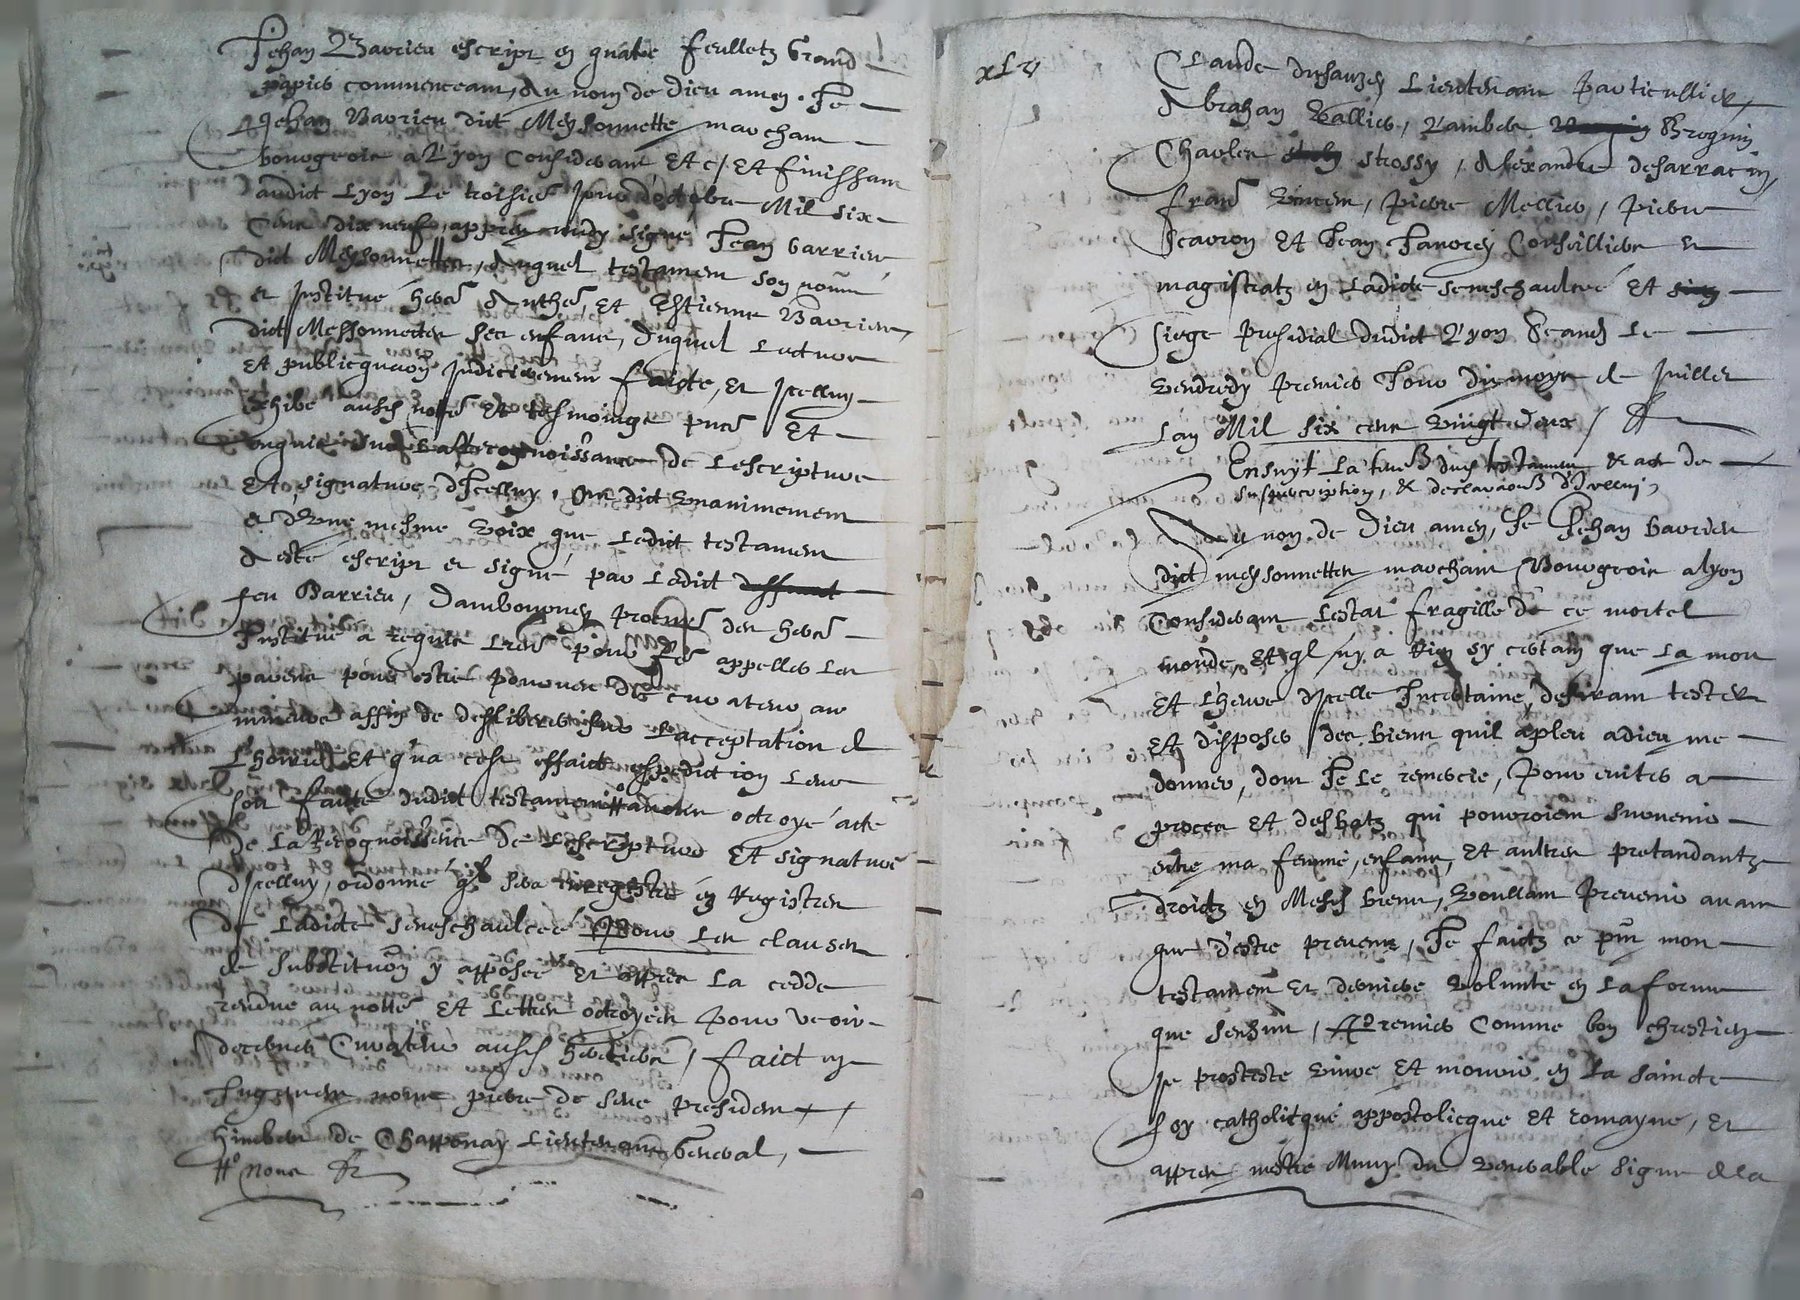 Jehan Barrieu escript en quatre feulletz Grand
papier commenceant, Au nom de Dieu amen. Je
Jehan Barrieu dict Meyssonnette marchant
bourgeois a Lyon Considerant Etc / Et finissant
audict Lyon le troisie jour d'octobre Mil six
Cent dix neuf, appres midy signe Jean barrieu
dict Meyssonnettes, Auquel testament son nomé
et Institué Et Estienne Barrieu
dict Messonnettes ses enfans, Duquel lecture
Et publicquaon Judiciairement faicte, Et Icelluy
Exhibé ausd notre Et tesmoings Et
recognoissance de Lescripture
Et signature d'Icelluy, Ont dict unanimement
et d'une mesme voix que ledict testament
A esté escript et signé par ledict deffunct
feu Barrieu, Dambournay procur des
Institué a requis pour appeller les
parens pour estre pourveu de curateur au
mineur affin de desliberer sur l'acceptation de
L'hoirie Et qu'a cest effaict expedition leur
soit faicte dudict testament octroyé acte
De la Recognoissance de Lescripture Et signature
d'Icelluy, ordonné ql sera enregistré en Registres
De Ladicte seneschaulcee Pour les clauses
de substitution y apposee Et appres la cedde
rendue au notte Et Lettres octroyees pour veoir
decerner Curateur ausd / faict en
Jugement nous pierre de seve president
himbert de Chapponay Lieutenant General,
nous
xLv
Claude dusauzey Lieutenant Particullier
Abraham Vallier, Lambert Brognin
Charles strossy, Alexandre desarracin,
Vincent, Pierre Mellier, Pierre
Scarron Et Jean Janorey Conseilliers et
magistratz en Ladicte seneschaulcé Et
siege presidial dudict Lyon seand le
Vendredy premier Jour du moys de Juillet
Lan Mil six cent vingt deux /
Ensuyt la dud testament & acte de
suspescription, & declaraon d'Icelluy
Au nom de Dieu amen, Je Jehan barrieu
dict meyssonnettes marchant Bourgeois a lyon
Considerant lestat fragille de ce mortel
monde, Et ql ny a Rien sy certain que la mort
Et Lheure d'Icelle Incertaine, desirant tester
Et disposer des biens quil a pleu a dieu me
donner, dont Je le remercie, Pour eviter a
proces Et desbatz qui pourroient survenir
entre ma femme, enfans, Et aultres pretandantz
droictz en Mesd biens, voullant prevenir avant
que d'estre prevenu, Je faictz ce pnt mon
testament Et derniere volunte en la forme
que sensuit, Premier Comme bon chrestien
Je proteste vivre Et mourir en La saincte
foy catholicque appostolicque Et romayne, Et
appres m'estre Muny du venerable signe de la